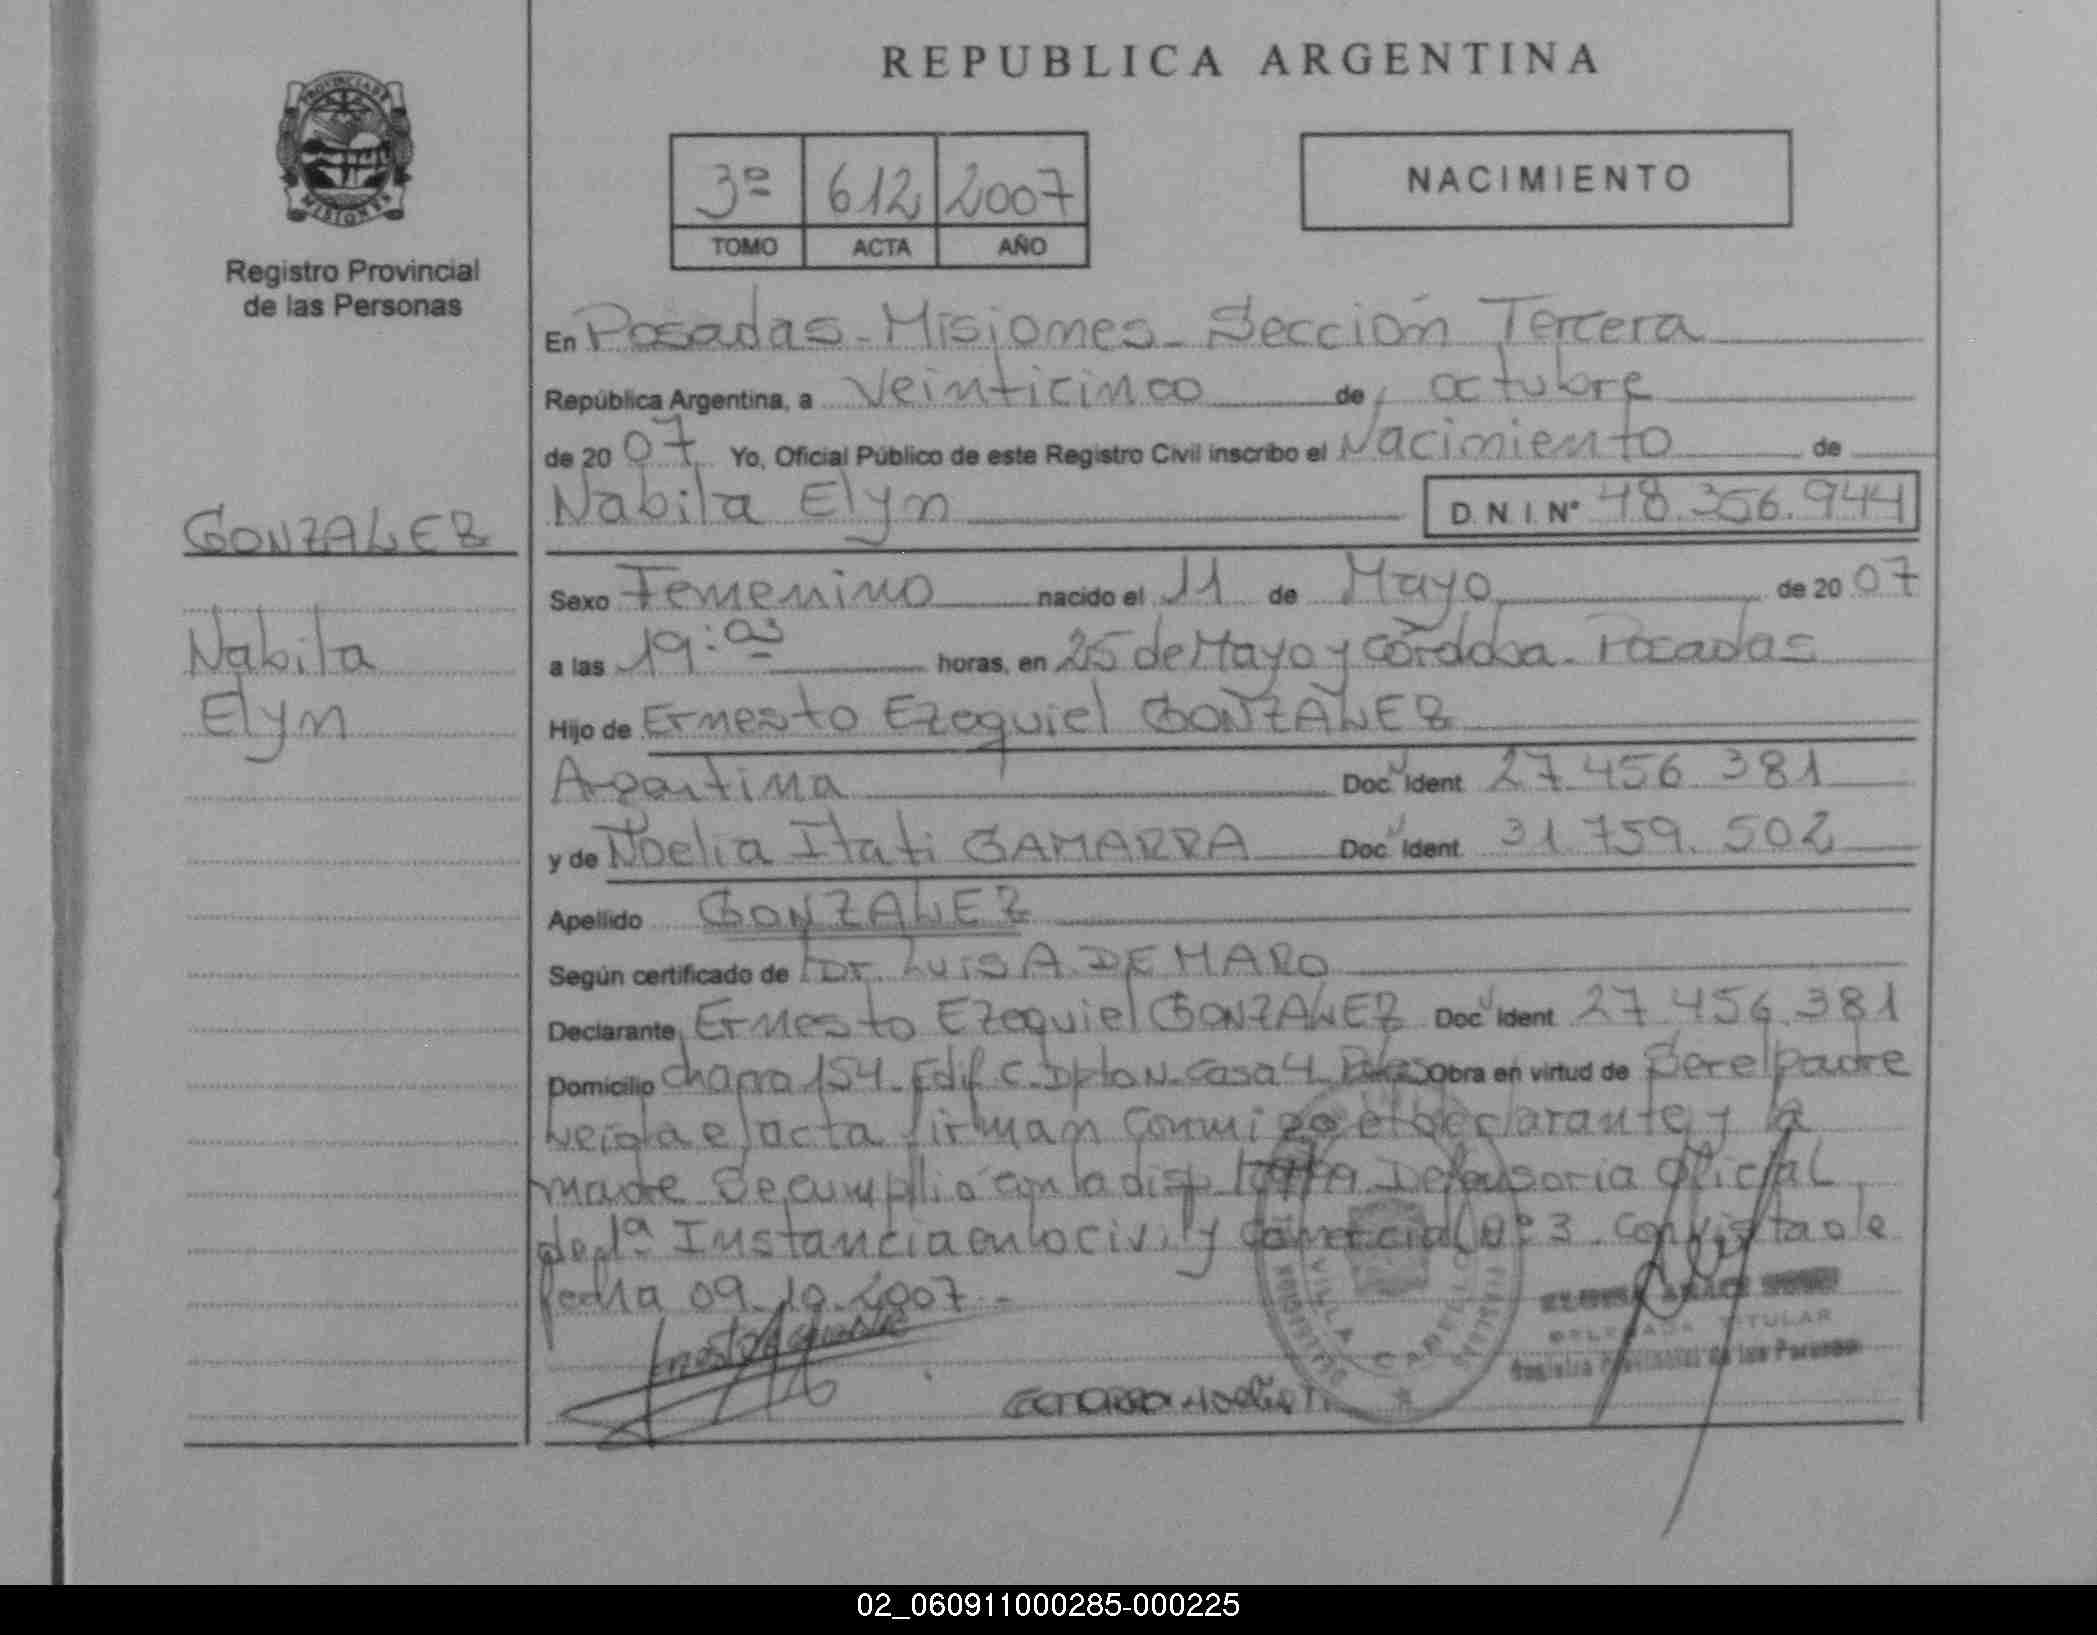 REPUBLICA ARGENTINA
PROVINCIA DE
MISIONES
Registro Provincial
de las Personas
3º 612 2007
TOMO ACTA AÑO
NACIMIENTO
En Posadas - Misiones - Sección Tercera
República Argentina, a Veinticinco de octubre
de 2007 Yo, Oficial Público de este Registro Civil inscribo el Nacimiento de
Nabila Elyn D.N.I. Nº 48.356.944
GONZALEZ
Nabila
Elyn
Sexo Femenino nacido el 11 de Mayo de 2007
a las 19:00 horas, en 25 de Mayo y Córdoba - Posadas
Hijo de Ernesto Ezequiel GONZALEZ
Argentina Doc Ident 27.456.381
y de Noelia Itati GAMARRA Doc Ident 31.759.502
Apellido GONZALEZ
Según certificado de Dr. LUIS A. DEMARO
Declarante Ernesto Ezequiel GONZALEZ Doc Ident 27.456.381
Domicilio chacra 154 - Edif C - Dpto N - Casa 4 obra en virtud de Ser el padre
Leida el acta firman conmigo el declarante y la
madre Se cumplió con la disp Defensoria Oficial
de 1ª Instancia en lo civil y comercial Nº 3 - con vista de
fecha 09.10.2007 -
VILLA CABELLO
DELEGADA TITULAR
Registro Provincial de las Personas
02_060911000285-000225